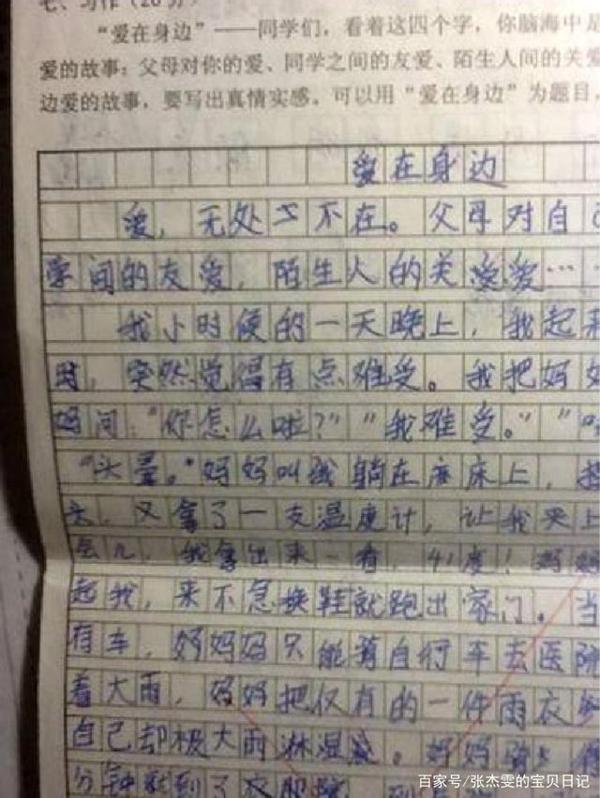 七、习作（20分）
“爱在身边”——同学们，看着这四个字，你脑海中是
爱的故事：父母对你的爱、同学之间的友爱、陌生人间的关爱
边爱的故事，要写出真情实感。可以用“爱在身边”为题目，
爱在身边
爱，无处不在。父母对自己
学间的友爱，陌生人的关爱爱……
我小时候的一天晚上，我起来
时，突然觉得有点难受。我把妈妈
妈问：“你怎么啦？”“我难受。”“
“头晕。”妈妈叫我躺在床上，
头，又拿了一支温度计，让我夹上
会儿，我拿出来一看，41度！妈妈
起我，来不急换鞋就跑出家门。当
有车，妈妈妈只能骑自行车去医院
着大雨，妈妈把仅有的一件雨衣
自己却被大雨淋湿。妈妈骑
分钟就到了
百家号/张杰雯的宝贝日记